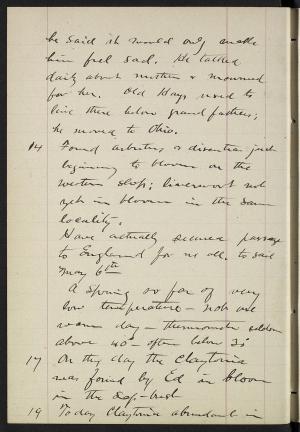 he said it would only make
him feel sad. He talked
daily about mother & mourned
for her. Old Hays used to
live there before grandfather;
he moved to Ohio.
14 Found arbutus & dicentra just
beginning to bloom on the
western slope; liverwort not
yet in bloom in the same
locality.
Have actually secured passage
to England for us all. to sail
May 6th
A spring so far of very
low temperature – not one
warm day – thermometer seldom
above 40° – often below 35°
17 On this day the Claytonia
was found by Ed in bloom
in the
19 Today Claytonia abundant in